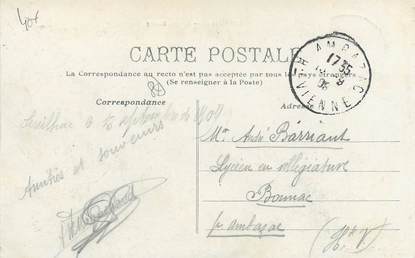 CARTE POSTALE
La Correspondance au recto n'est pas acceptée par tous les pays étrangers
(Se renseigner à la Poste)
Correspondance
Adresse
AMBAZAC
17 35
Hte VIENNE
septembre 1908
Amitiés et souvenirs
Mr André Barriant
Lycéen en villégiature
Bonnac
pr ambazac
(Hte V)